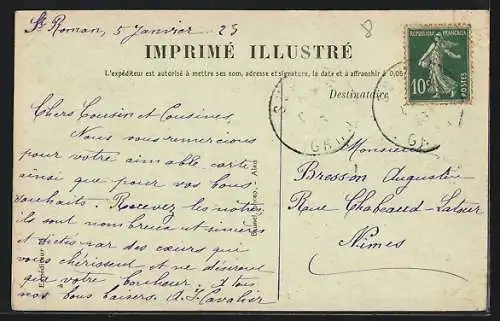 St Roman, 5 Janvier 23
8
IMPRIMÉ ILLUSTRÉ
L'expéditeur est autorisé à mettre ses nom, adresse et signature, la date et à affranchir à 0,05
Destinataire
RÉPUBLIQUE FRANÇAISE
10c
POSTES
GARD
GARD
Chers Cousin et Cousines,
Nous vous remercions
pour votre aimable carte
ainsi que pour vos bons
souhaits. Recevez les nôtres
ils sont nombreux et
et dictés par des cœurs qui
vous chérissent et ne désirent
que votre bonheur. A tous
nos bons baisers. A. J. Cavalier
Expéditeur
Monsieur
Bresson Augustin
Rue Chabeaud-Latour
Nîmes